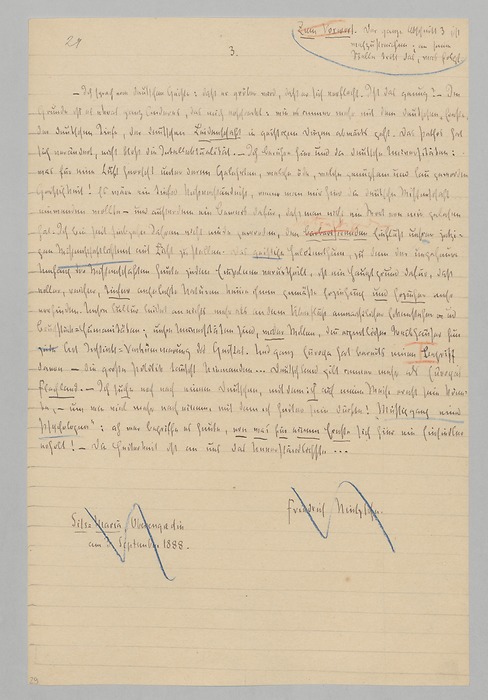 29
Zum Vorwort. Der ganze Abschnitt 3 ist
3.
— Ich sprach vom deutschen Geiste: daß er gröber wird, daß er sich verflacht. Ist das genug? — Im
Grunde ist es etwas ganz Anderes, das mich erschreckt: wie es immer mehr mit dem deutschen Ernste,
der deutschen Tiefe, der deutschen Leidenschaft in geistigen Dingen abwärts geht. Das Pathos hat
sich verändert, nicht bloß die Intellektualität. — Ich berühre hier und da deutsche Universitäten:
was für eine Luft herrscht unter deren Gelehrten, welche öde, welche genügsam und lau gewordne
Geistigkeit! Es wäre ein tiefes Mißverständniß, wenn man mir hier die deutsche Wissenschaft
einwenden wollte — und außerdem ein Beweis dafür, daß man nicht ein Wort von mir gelesen
hat. Ich bin seit siebzehn Jahren nicht müde geworden, den Einfluß unsres jetzi-
gen Wissenschaftsbetriebs ans Licht zu stellen. Das Helotenthum, zu dem der ungeheure
Umfang der Wissenschaften heute jeden Einzelnen verurtheilt, ist ein Hauptgrund dafür, daß
voller, reicher, tiefer angelegte Naturen keine ihnen gemäße Erziehung und Erzieher mehr
vorfinden. Unsre Cultur leidet an nichts mehr als an dem Überfluß anmaaßlicher Eckensteher und
Bruchstückhumanitäten; unsre Universitäten sind, wider Willen, die eigentlichen Treibhäuser für
diese Art Instinkt-Verkümmerung des Geistes. Und ganz Europa hat bereits einen Begriff
davon — die große Politik täuscht Niemanden... Deutschland gilt immer mehr als Europas
Flachland. — Ich suche noch nach einem Deutschen, mit dem ich auf meine Weise ernst sein könn-
te, — um wie viel mehr nach einem, mit dem ich heiter sein dürfte! Müßiggang eines
Psychologen: ah wer begriffe es heute, von was für einem Ernste sich hier ein Einsiedler
erholt! — Die Heiterkeit ist an uns das Unverständlichste ...
Friedrich Nietzsche.
Sils-Maria, Oberengadin
am September 1888.
29